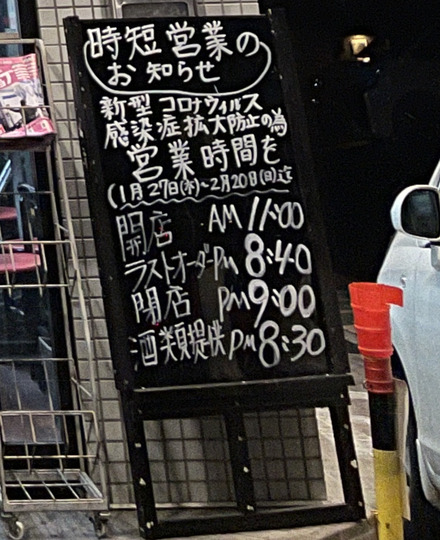 時短営業の
お知らせ
新型コロナウィルス
感染症拡大防止の為
営業時間を
(1月27日(木)~2月20日(日)迄
開店 AM 11:00
ラストオーダーPM 8:40
閉店 PM 9:00
酒類提供 PM 8:30